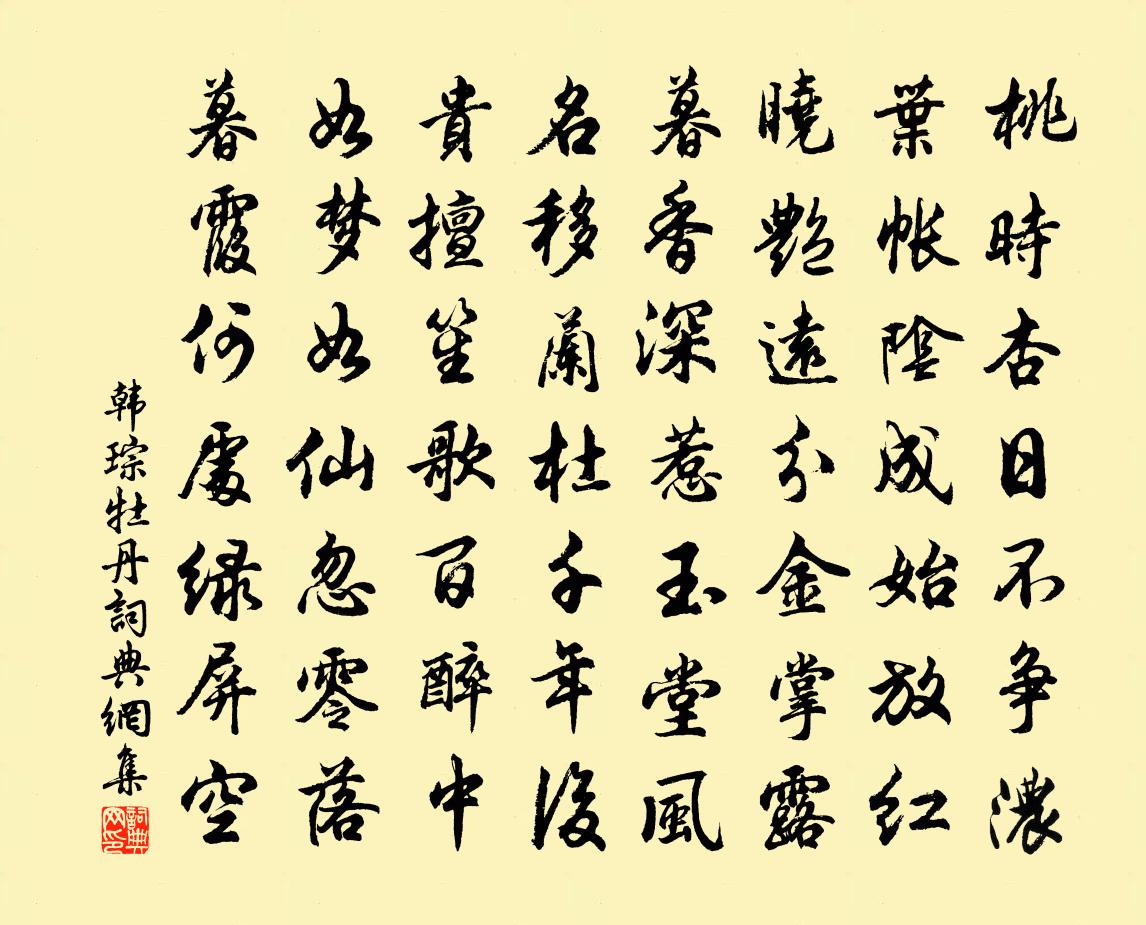 桃時杏日不争濃
葉帳陰成始放紅
曉艷遠分金掌露
暮香深惹玉堂風
名移蘭杜千年後
貴擅笙歌百醉中
如梦如仙忽零落
暮霞何處绿屏空
韩琮牡丹詞典網集
詞典网印